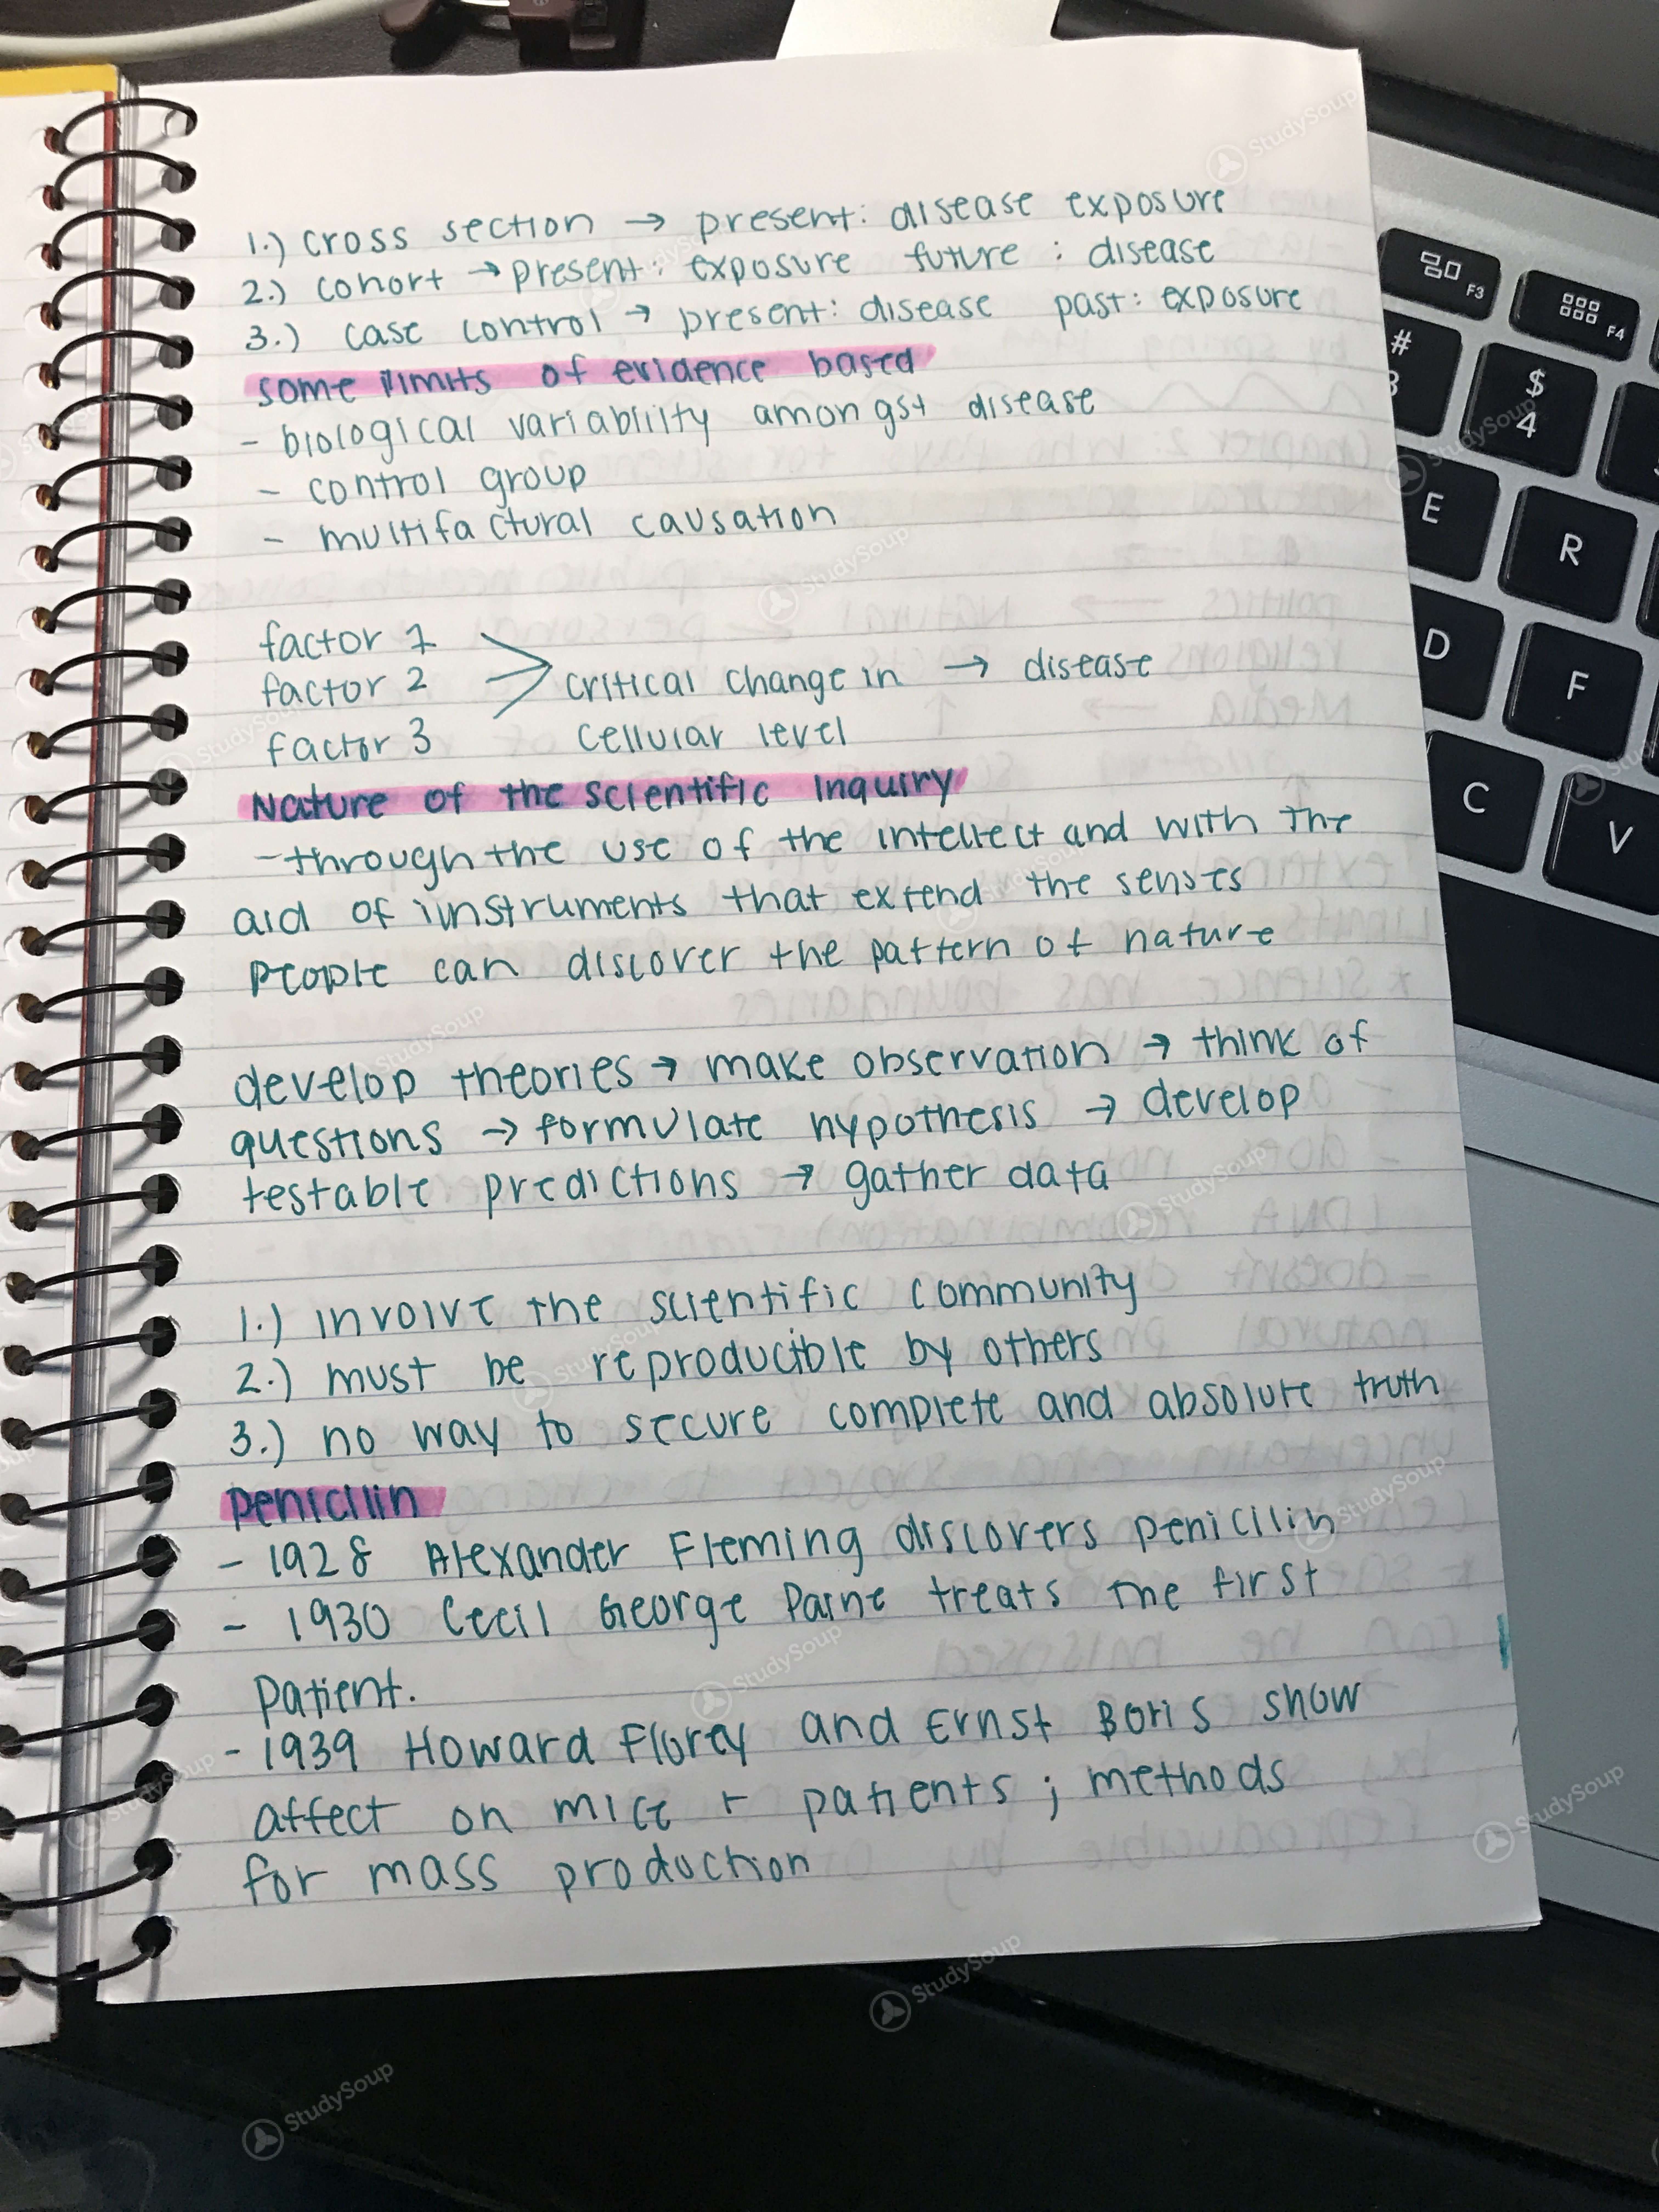 1.) cross section → present: disease exposure
2.) cohort → present: exposure future : disease
3.) case control → present: disease past: exposure
some limits of evidence based
- biological variability amongst disease
- control group
- multifactural causation
factor 1
factor 2 critical change in → disease
factor 3 cellular level
Nature of the scientific Inquiry
-through the use of the intellect and with the
aid of iinstruments that extend the senses
people can discover the pattern of nature
develop theories → make observation → think of
questions → formulate hypothesis → develop
testable predictions → gather data
1.) involve the scientific community
2.) must be reproducible by others
3.) no way to secure complete and absolute truth
penicilin
- 1928 Alexander Fleming discovers penicilin
- 1930 Cecil George Paine treats the first
patient.
- 1939 Howard Florey and Ernst Boris show
affect on mice + patients ; methods
for mass production
F3
F4
#
3
$
4
E
R
D
F
C
V
StudySoup